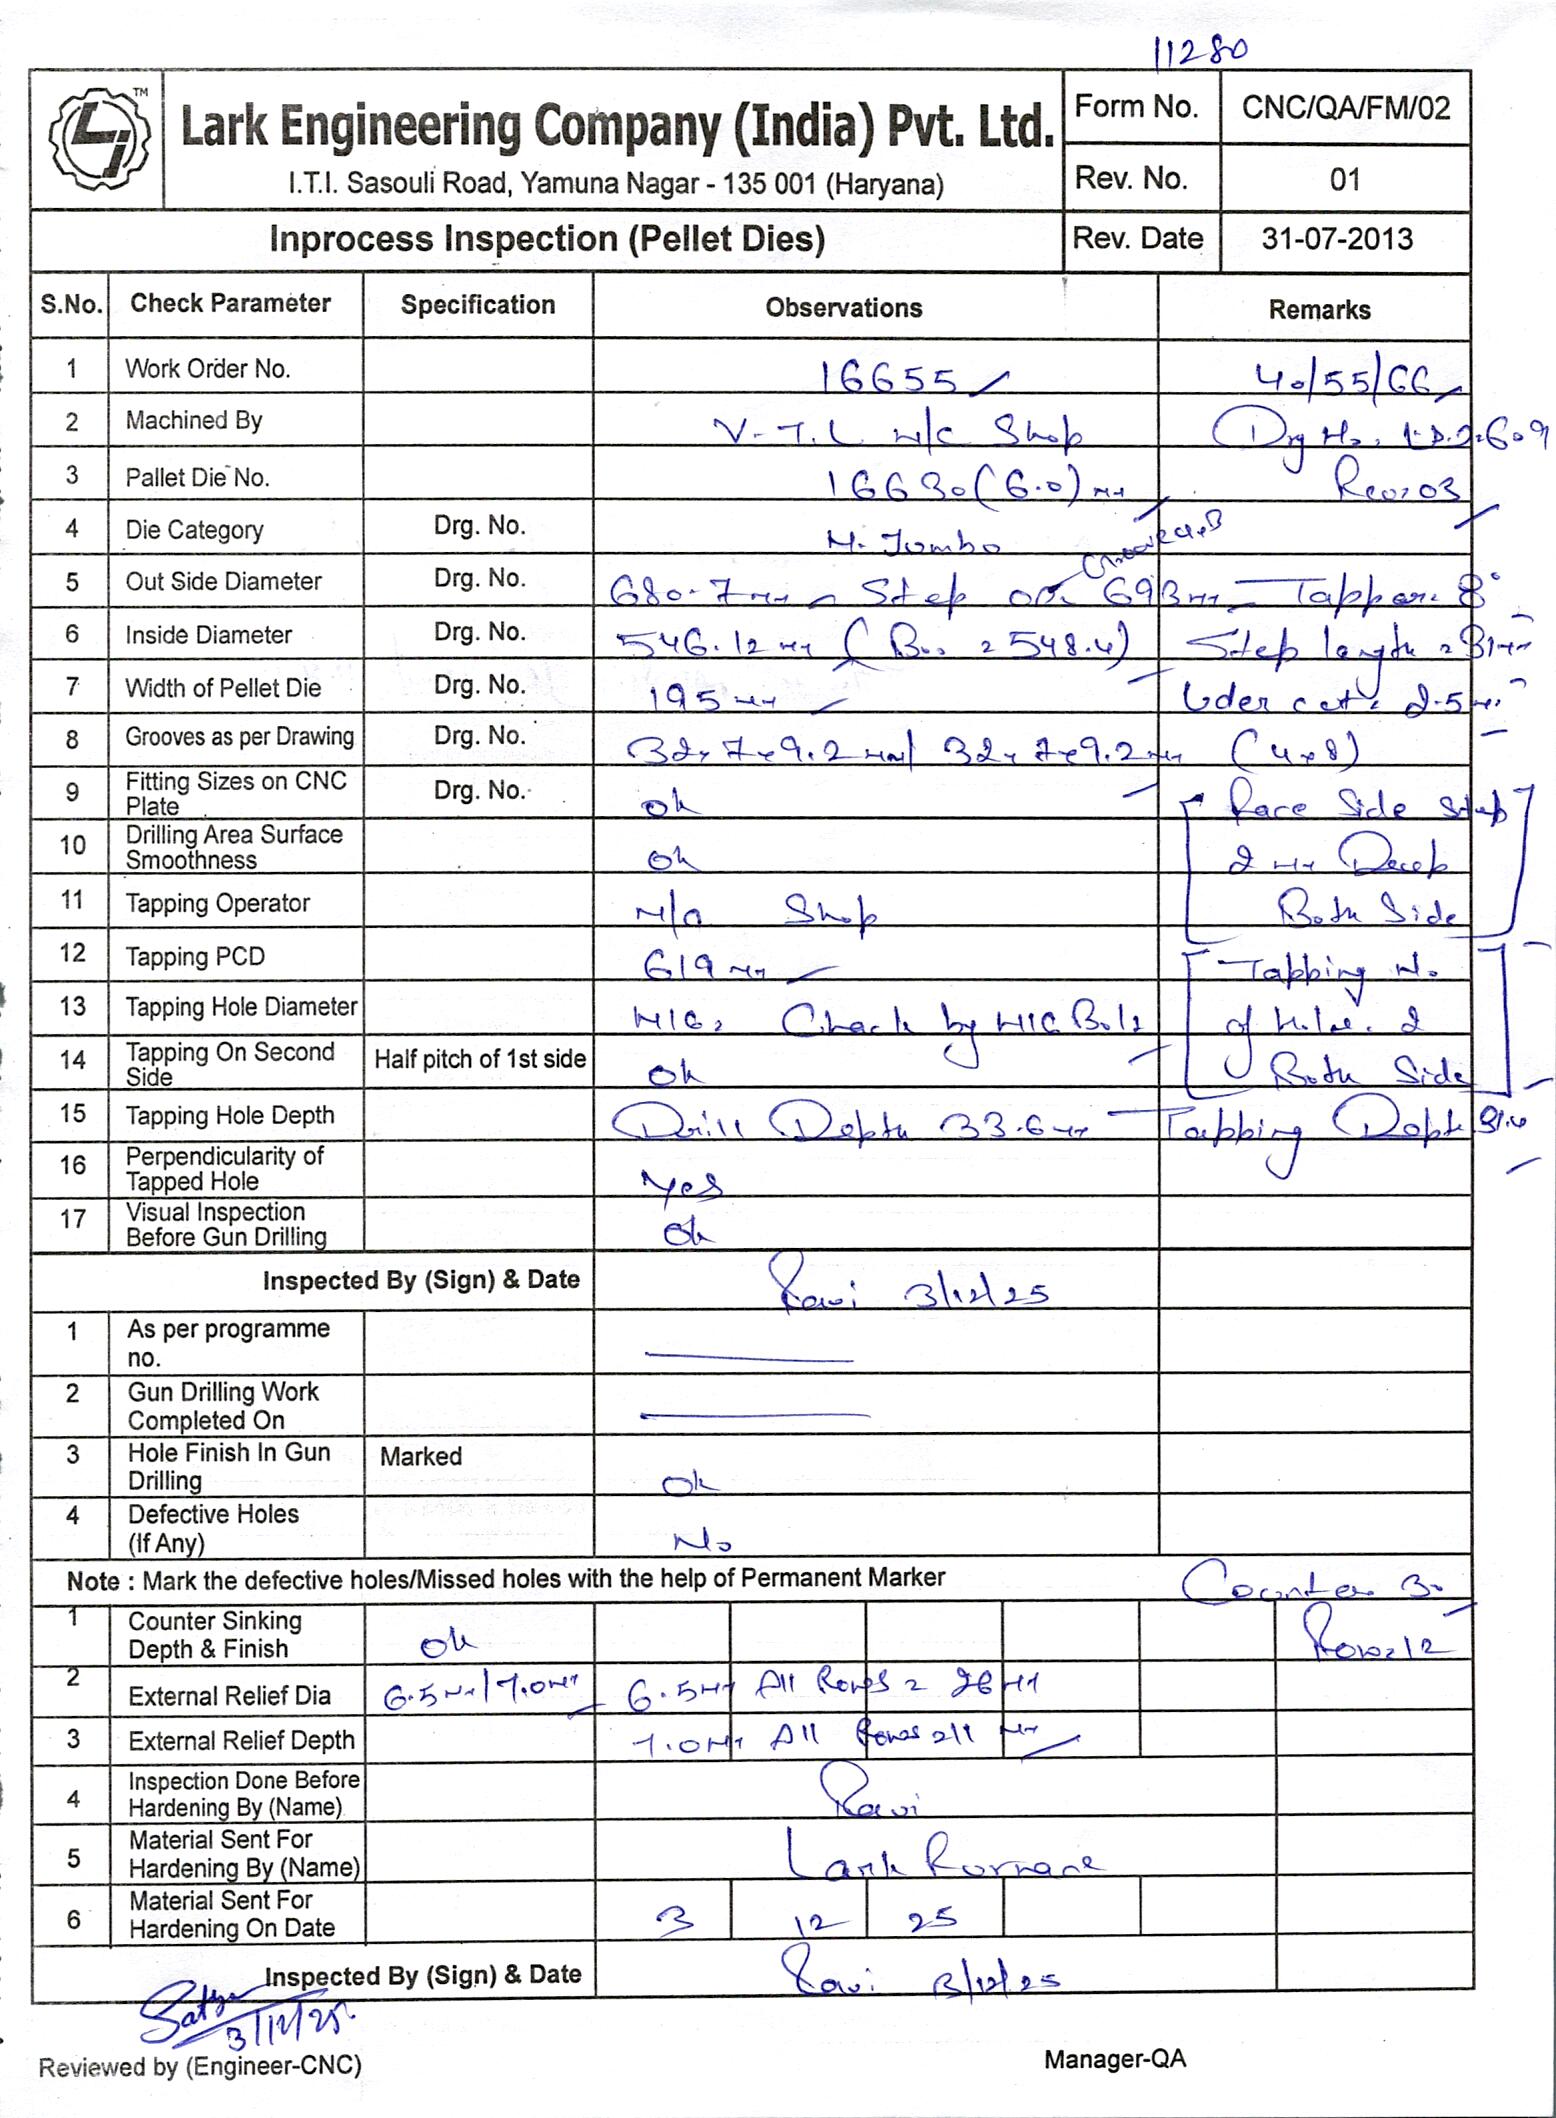 11280
Lark Engineering Company (India) Pvt. Ltd.
I.T.I. Sasouli Road, Yamuna Nagar - 135 001 (Haryana)
Form No. CNC/QA/FM/02
Rev. No. 01
Inprocess Inspection (Pellet Dies) Rev. Date 31-07-2013
S.No. Check Parameter Specification Observations Remarks
1 Work Order No. 16655 40/55/66
2 Machined By V.T.L M/C Shop Drg No.
3 Pallet Die No. 16630 (6.0) mm Rev:03
4 Die Category Drg. No. M. Jumbo
5 Out Side Diameter Drg. No. 680.7mm Step 693mm Tapper 8°
6 Inside Diameter Drg. No. 546.12 mm 548.4) Step length = 31mm
7 Width of Pellet Die Drg. No. 195 mm Uder cut 2.5 mm
8 Grooves as per Drawing Drg. No. 32x7x9.2mm/ 32x7x9.2mm (4x8)
9 Fitting Sizes on CNC Plate Drg. No. ok Face Side Step
10 Drilling Area Surface Smoothness ok 2 mm Deep
11 Tapping Operator M/C Shop Both Side
12 Tapping PCD 619 mm Tapping No.
13 Tapping Hole Diameter M16, Check by M16 Bolt of Hole. 2
14 Tapping On Second Side Half pitch of 1st side ok Both Side
15 Tapping Hole Depth Drill Depth 33.6mm Tapping Depth
16 Perpendicularity of Tapped Hole Yes
17 Visual Inspection Before Gun Drilling ok
Inspected By (Sign) & Date Ravi 3/12/25
1 As per programme no.
2 Gun Drilling Work Completed On
3 Hole Finish In Gun Drilling Marked ok
4 Defective Holes (If Any) No
Note : Mark the defective holes/Missed holes with the help of Permanent Marker Counter 30
1 Counter Sinking Depth & Finish ok Rows=12
2 External Relief Dia 6.5mm/7.0mm 6.5mm All Rows = 26mm
3 External Relief Depth 7.0mm All Rows = 11 mm
4 Inspection Done Before Hardening By (Name) Ravi
5 Material Sent For Hardening By (Name) Lark Furnace
6 Material Sent For Hardening On Date 3 12 25
Inspected By (Sign) & Date Ravi 3/12/25
Satya
3/12/25
Reviewed by (Engineer-CNC) Manager-QA